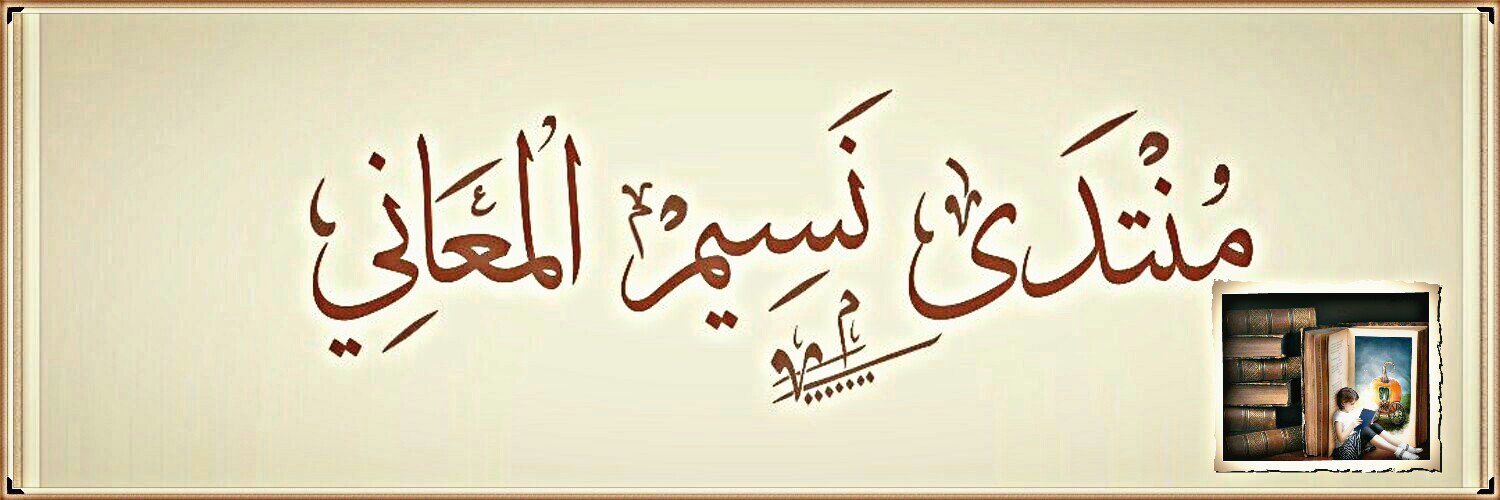 مُنْتَدَى نَسِيمْ المَعَانِي